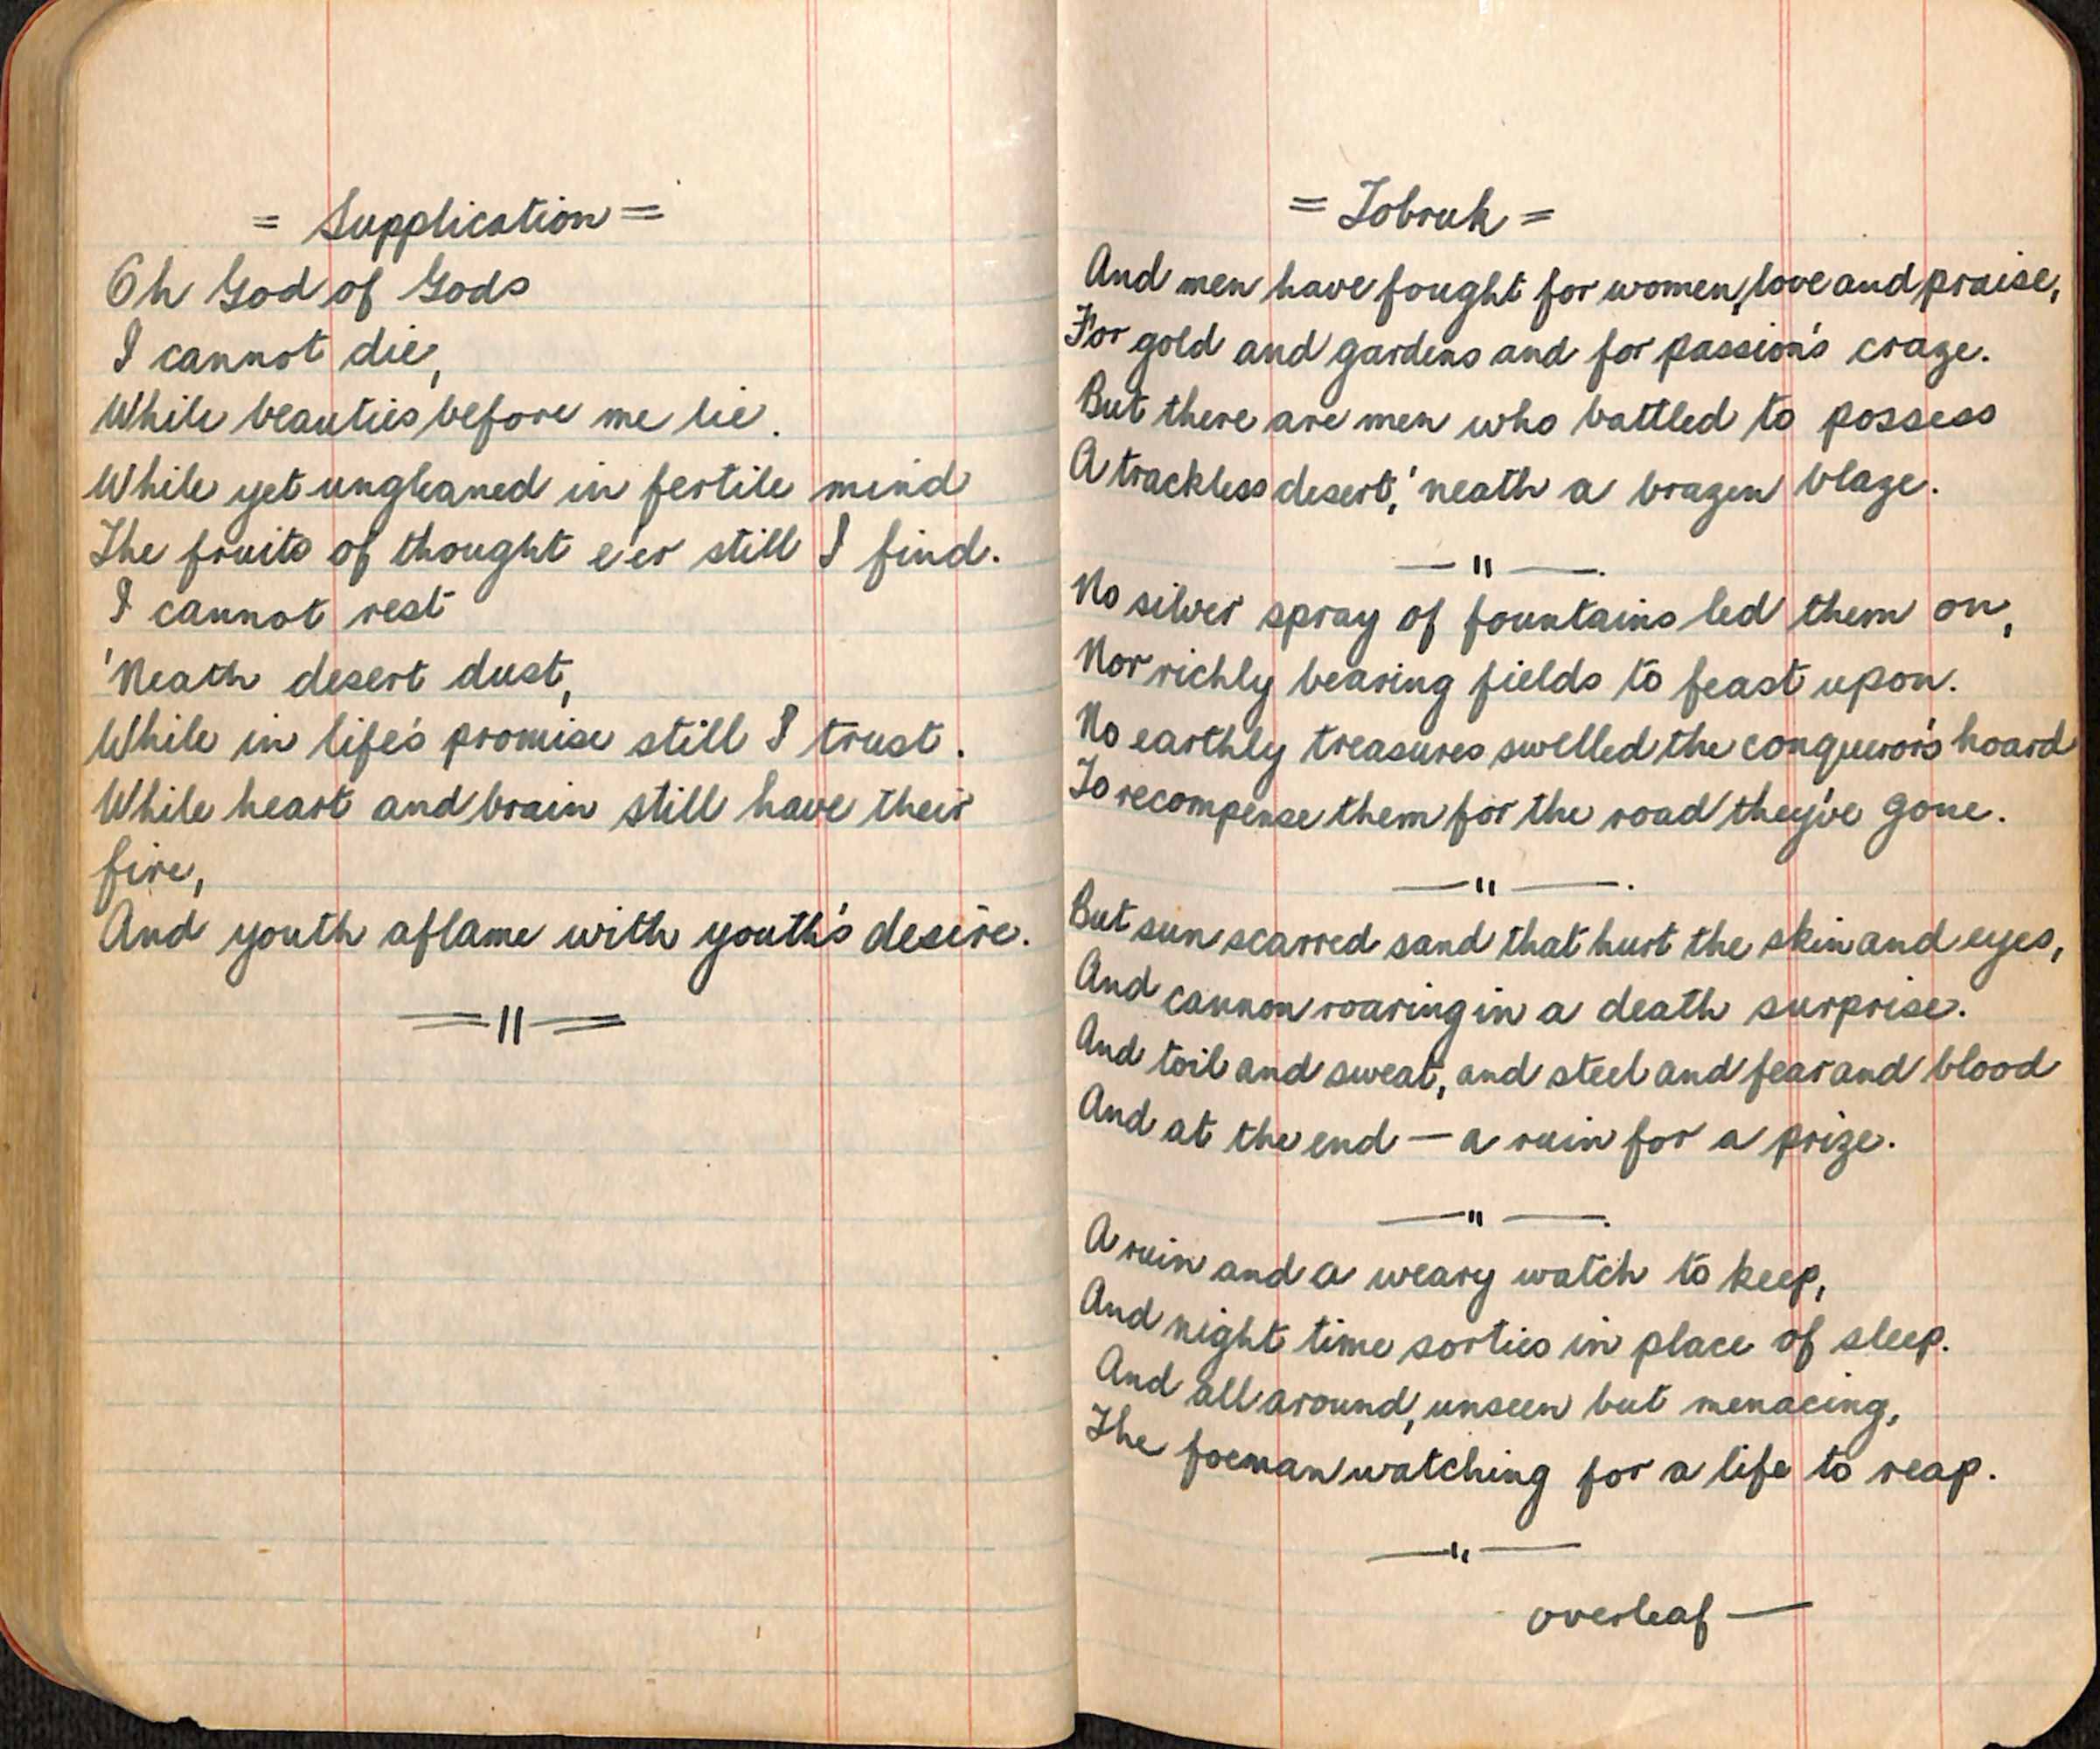 = Supplication =
Oh God of Gods
I cannot die,
While beauties before me lie.
While yet ungleaned in fertile mind
The fruits of thought e'er still I find.
I cannot rest
'Neath desert dust,
While in life's promise still I trust.
While heart and brain still have their
fire,
And youth aflame with youth's desire.
= " =
= Tobruk =
And men have fought for women, love and praise,
For gold and gardens and for passion's craze.
But there are men who battled to possess
A trackless desert, 'neath a brazen blaze.
— " —.
No silver spray of fountains led them on,
Nor richly bearing fields to feast upon.
No earthly treasures swelled the conqueror's hoard
To recompense them for the road they've gone.
— " —.
But sun scarred sand that hurt the skin and eyes,
And cannon roaring in a death surprise.
And toil and sweat, and steel and fear and blood
And at the end — a ruin for a prize.
— " —.
A ruin and a weary watch to keep,
And night time sorties in place of sleep.
And all around, unseen but menacing,
The foeman watching for a life to reap.
— " —
overleaf —